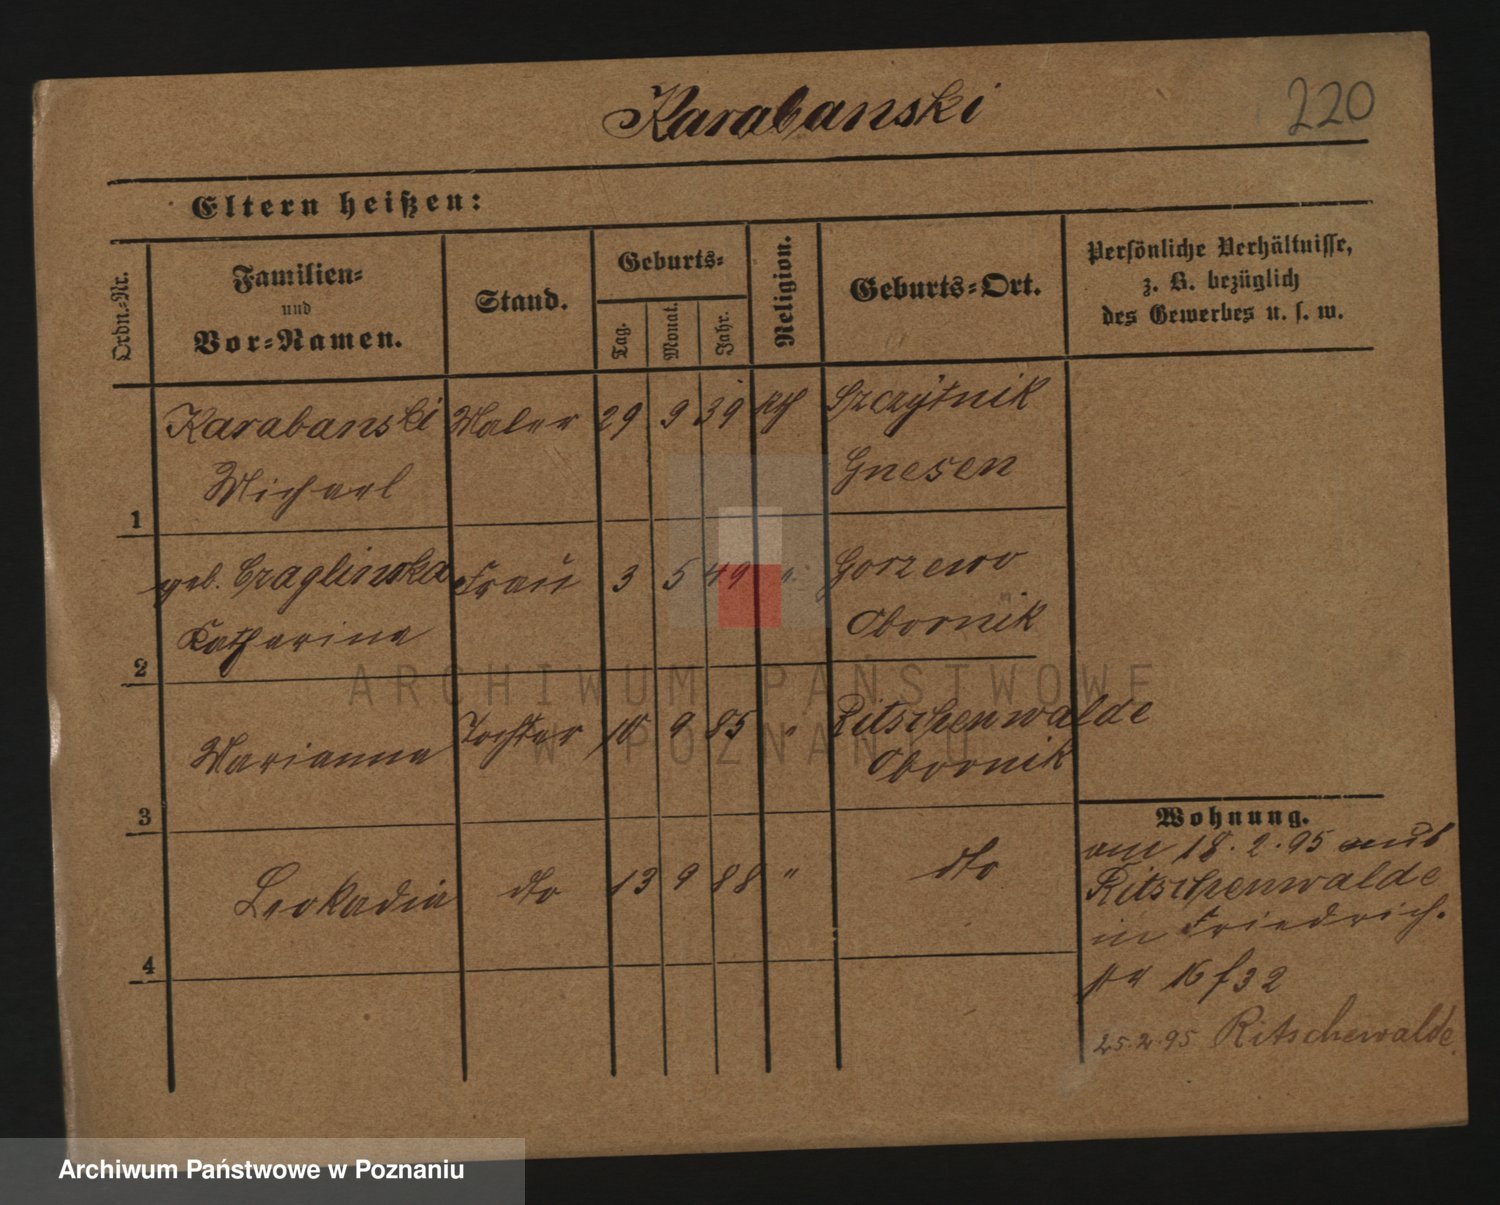 Karabanski
220
Eltern heißen:
Ordn.-Nr.
Familien-
und
Vor-Namen.
Stand.
Geburts-
Tag.
Monat.
Jahr.
Religion.
Geburts-Ort.
Persönliche Verhältnisse,
z. B. bezüglich
des Gewerbes u. s. w.
1
Karabanski
Michael
Maler
29 9 39
kth
Szczytnik
Gnesen
2
geb. Czaglinska
Katharina
Frau
3 5 49
Gorzewo
Obornik
3
Marianna
Tochter
10 9 85
"
Ritschenwalde
Obornik
4
Leokadia
dto
13 9 88
"
dto
Wohnung.
am 18.2.95 aus
Ritschenwalde
in Friedrich.
str 16 f 32
25.2.95 Ritschewalde.
ARCHIWUM PAŃSTWOWE
W POZNANIU
Archiwum Państwowe w Poznaniu